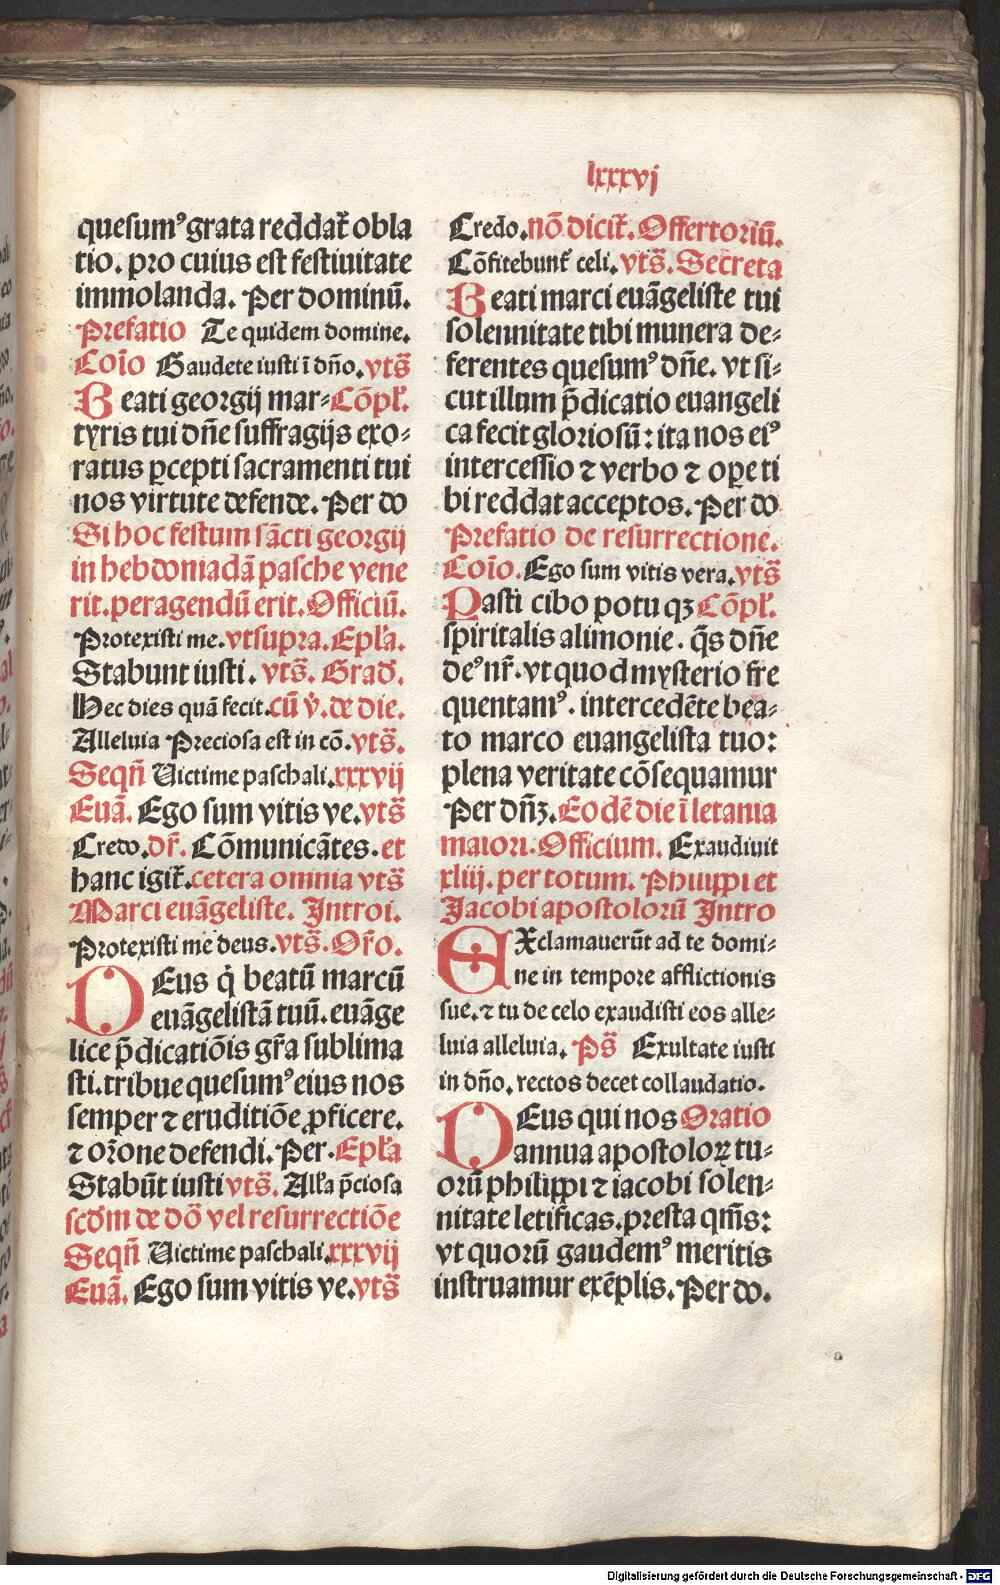 lxxxvj
quesumꝰ grata reddat᷑ obla
tio. pro cuius est festiuitate
immolanda. Per dominū.
Prefatio Te quidem domine.
Coīo Gaudete iusti ī dño. vts̄
Beati georgij mar⸗ Cōpl᷑.
tyris tui dñe suffragijs exo⸗
ratus ꝑcepti sacramenti tui
nos virtute defende. Per do
Si hoc festum sācti georgij
in hebdoniadā pasche vene
rit. peragendū erit. Officiū.
Protexisti me. vtsupra. Epl̄a.
Stabunt iusti. vts̄. Grad̄.
Hec dies quā fecit. cū v̇. de die.
Alleluia Preciosa est in cō. vts̄.
Seqñ Uictime paschali. xxxvij
Euā. Ego sum vitis ve. vts̄
Credo. dr̄. Cōmunicātes. et
hanc igit᷑. cetera omnia vts̄
Marci euāgeliste. Introi.
Protexisti me deus. vts̄. Or̄o.
DEus q̇ beatū marcū
euāgelistā tuū. euāge
lice p̄dicatiōis gr̄a sublima
sti. tribue quesumꝰ eius nos
semper ⁊ eruditiōe ꝓficere.
⁊ or̄one defendi. Per. Epl̄a
Stabūt iusti vts̄. All̄a p̄ciosa
scd̄m de dō vel resurrectiōe
Seqñ Uictime paschali. xxxvij
Euā. Ego sum vitis ve. vts̄
Credo. nō dicit᷑. Offertoriū.
Cōfitebunt᷑ celi. vts̄. Secreta
Beati marci euāgeliste tui
solennitate tibi munera de⸗
ferentes quesumꝰ dñe. vt si⸗
cut illum p̄dicatio euangeli
ca fecit gloriosū: ita nos eiꝰ
intercessio ⁊ verbo ⁊ oꝑe ti
bi reddat acceptos. Per do
Prefatio de resurrectione.
Coīo. Ego sum vitis vera. vts̄
Pasti cibo potu qꝫ Cōpl᷑.
spiritalis alimonie. q̄s dñe
deꝰ nr̄. vt quod mysterio fre
quentamꝰ. intercedēte bea⸗
to marco euangelista tuo:
plena veritate cōsequamur
Per dñꝫ. Eodē die ī letania
maiori. Officium. Exaudiuit
xliij. per totum. Philippi et
Jacobi apostolorū Intro
EXclamauerūt ad te domi⸗
ne in tempore afflictionis
sue. ⁊ tu de celo exaudisti eos alle⸗
luia alleluia. Ps̄ Exultate iusti
in dño. rectos decet collaudatio.
DEus qui nos Oratio
annua apostoloꝝ tu⸗
orū philippi ⁊ iacobi solen⸗
nitate letificas. presta qm̄s:
vt quorū gaudemꝰ meritis
instruamur exēplis. Per do.
Digitalisierung gefördert durch die Deutsche Forschungsgemeinschaft - DFG